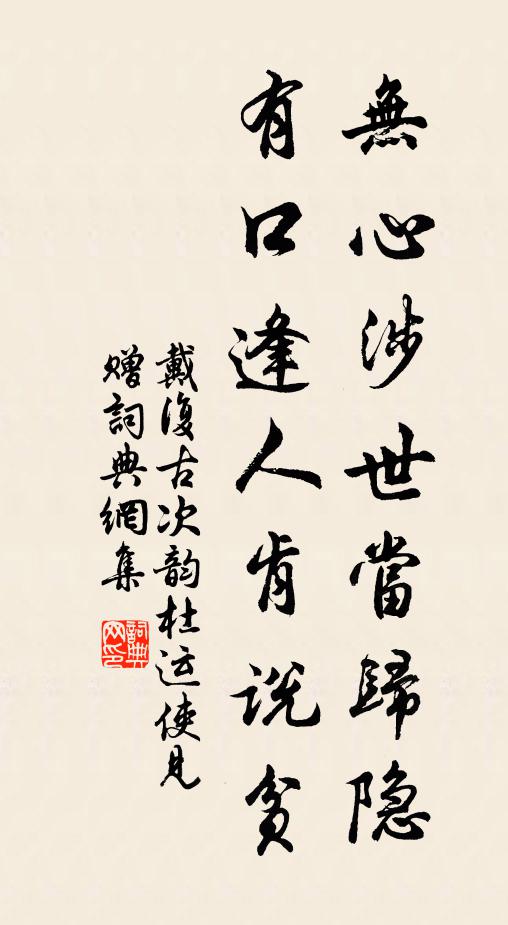 無心涉世當歸隐
有口逢人肯説貧
戴復古次韵杜运使見
贈詞典網集
詞典网印